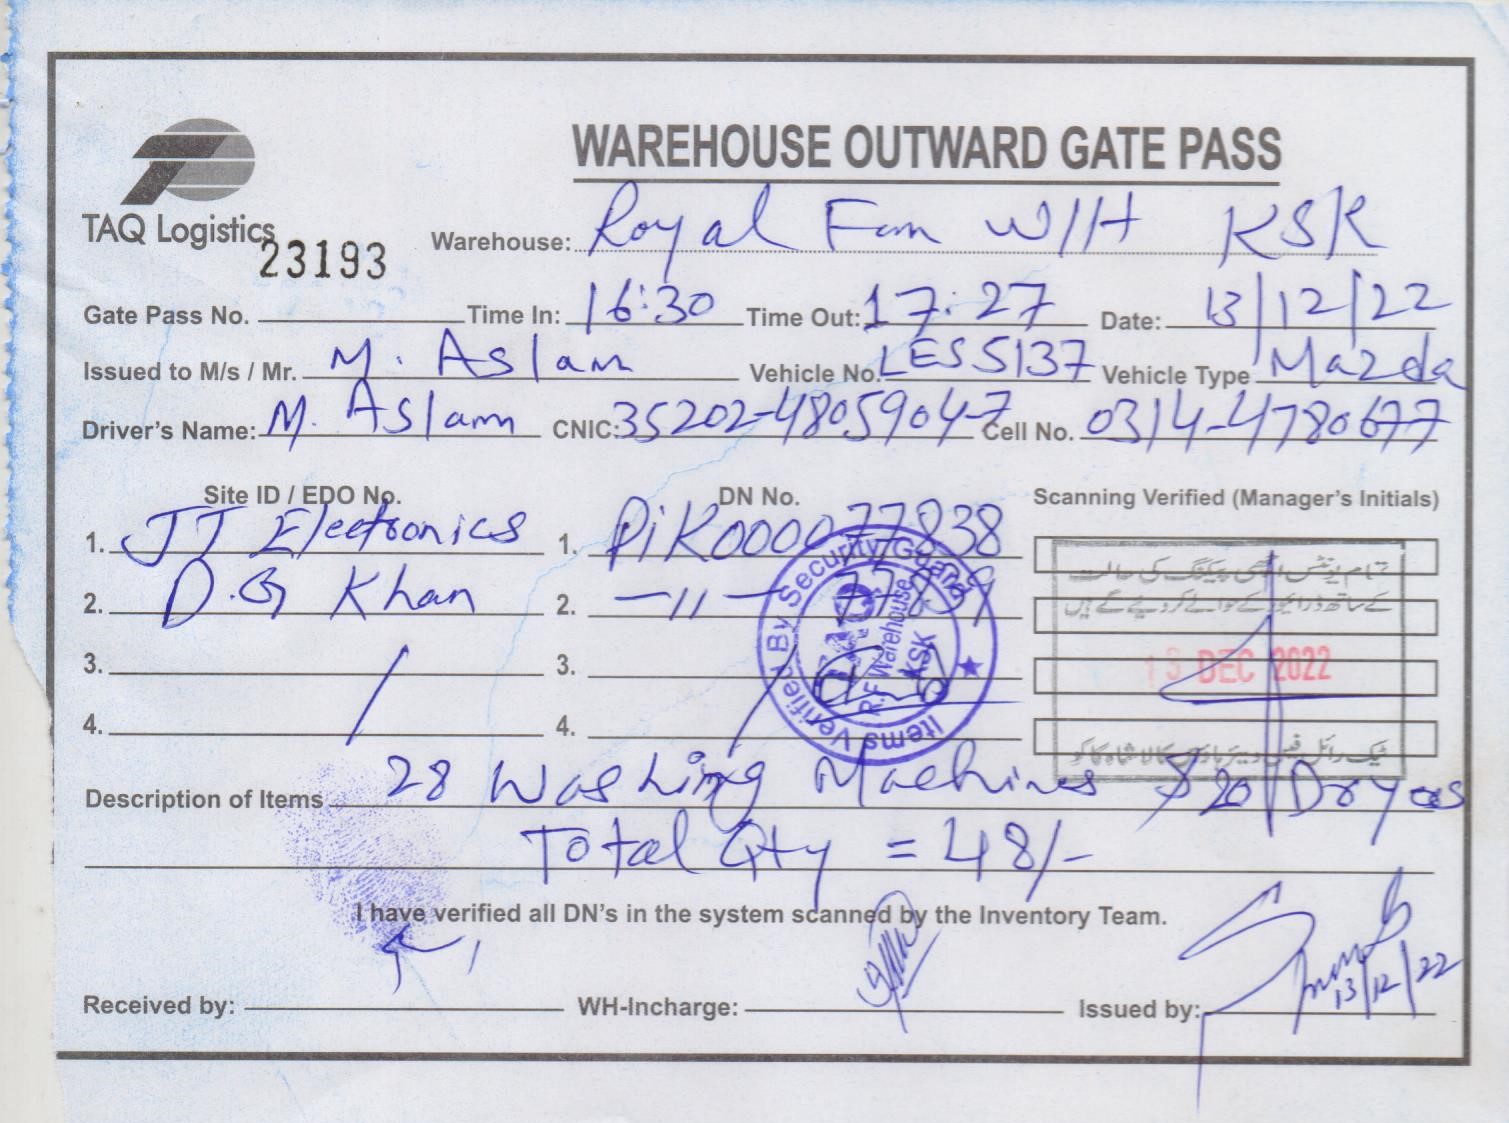 WAREHOUSE OUTWARD GATE PASS
TAQ Logistics
23193
Warehouse: Royal Fan W/H KSK
Gate Pass No. Time In: 16:30 Time Out: 17:27 Date: 13/12/22
Issued to M/s / Mr. M. Aslam Vehicle No. LES 5137 Vehicle Type Mazda
Driver's Name: M. Aslam CNIC: 35202-4805904-7 Cell No. 0314-4780677
Site ID / EDO No. DN No. Scanning Verified (Manager's Initials)
1. JJ Electronics 1. PiK000077838
2. D.G Khan 2. —11— 77839
3. 3.
4. 4.
Items Verified By Security Guard
TAQ
R.F Warehouse
KSK
تمام یونٹس اچھی پیکنگ کی حالت
کے ساتھ ڈرائیور کے حوالے کر دیئے گئے ہیں
13 DEC 2022
Description of Items 28 Washing Machines & 20 Dryers
Total Qty = 48/-
I have verified all DN's in the system scanned by the Inventory Team.
Received by: WH-Incharge: Issued by: 13/12/22